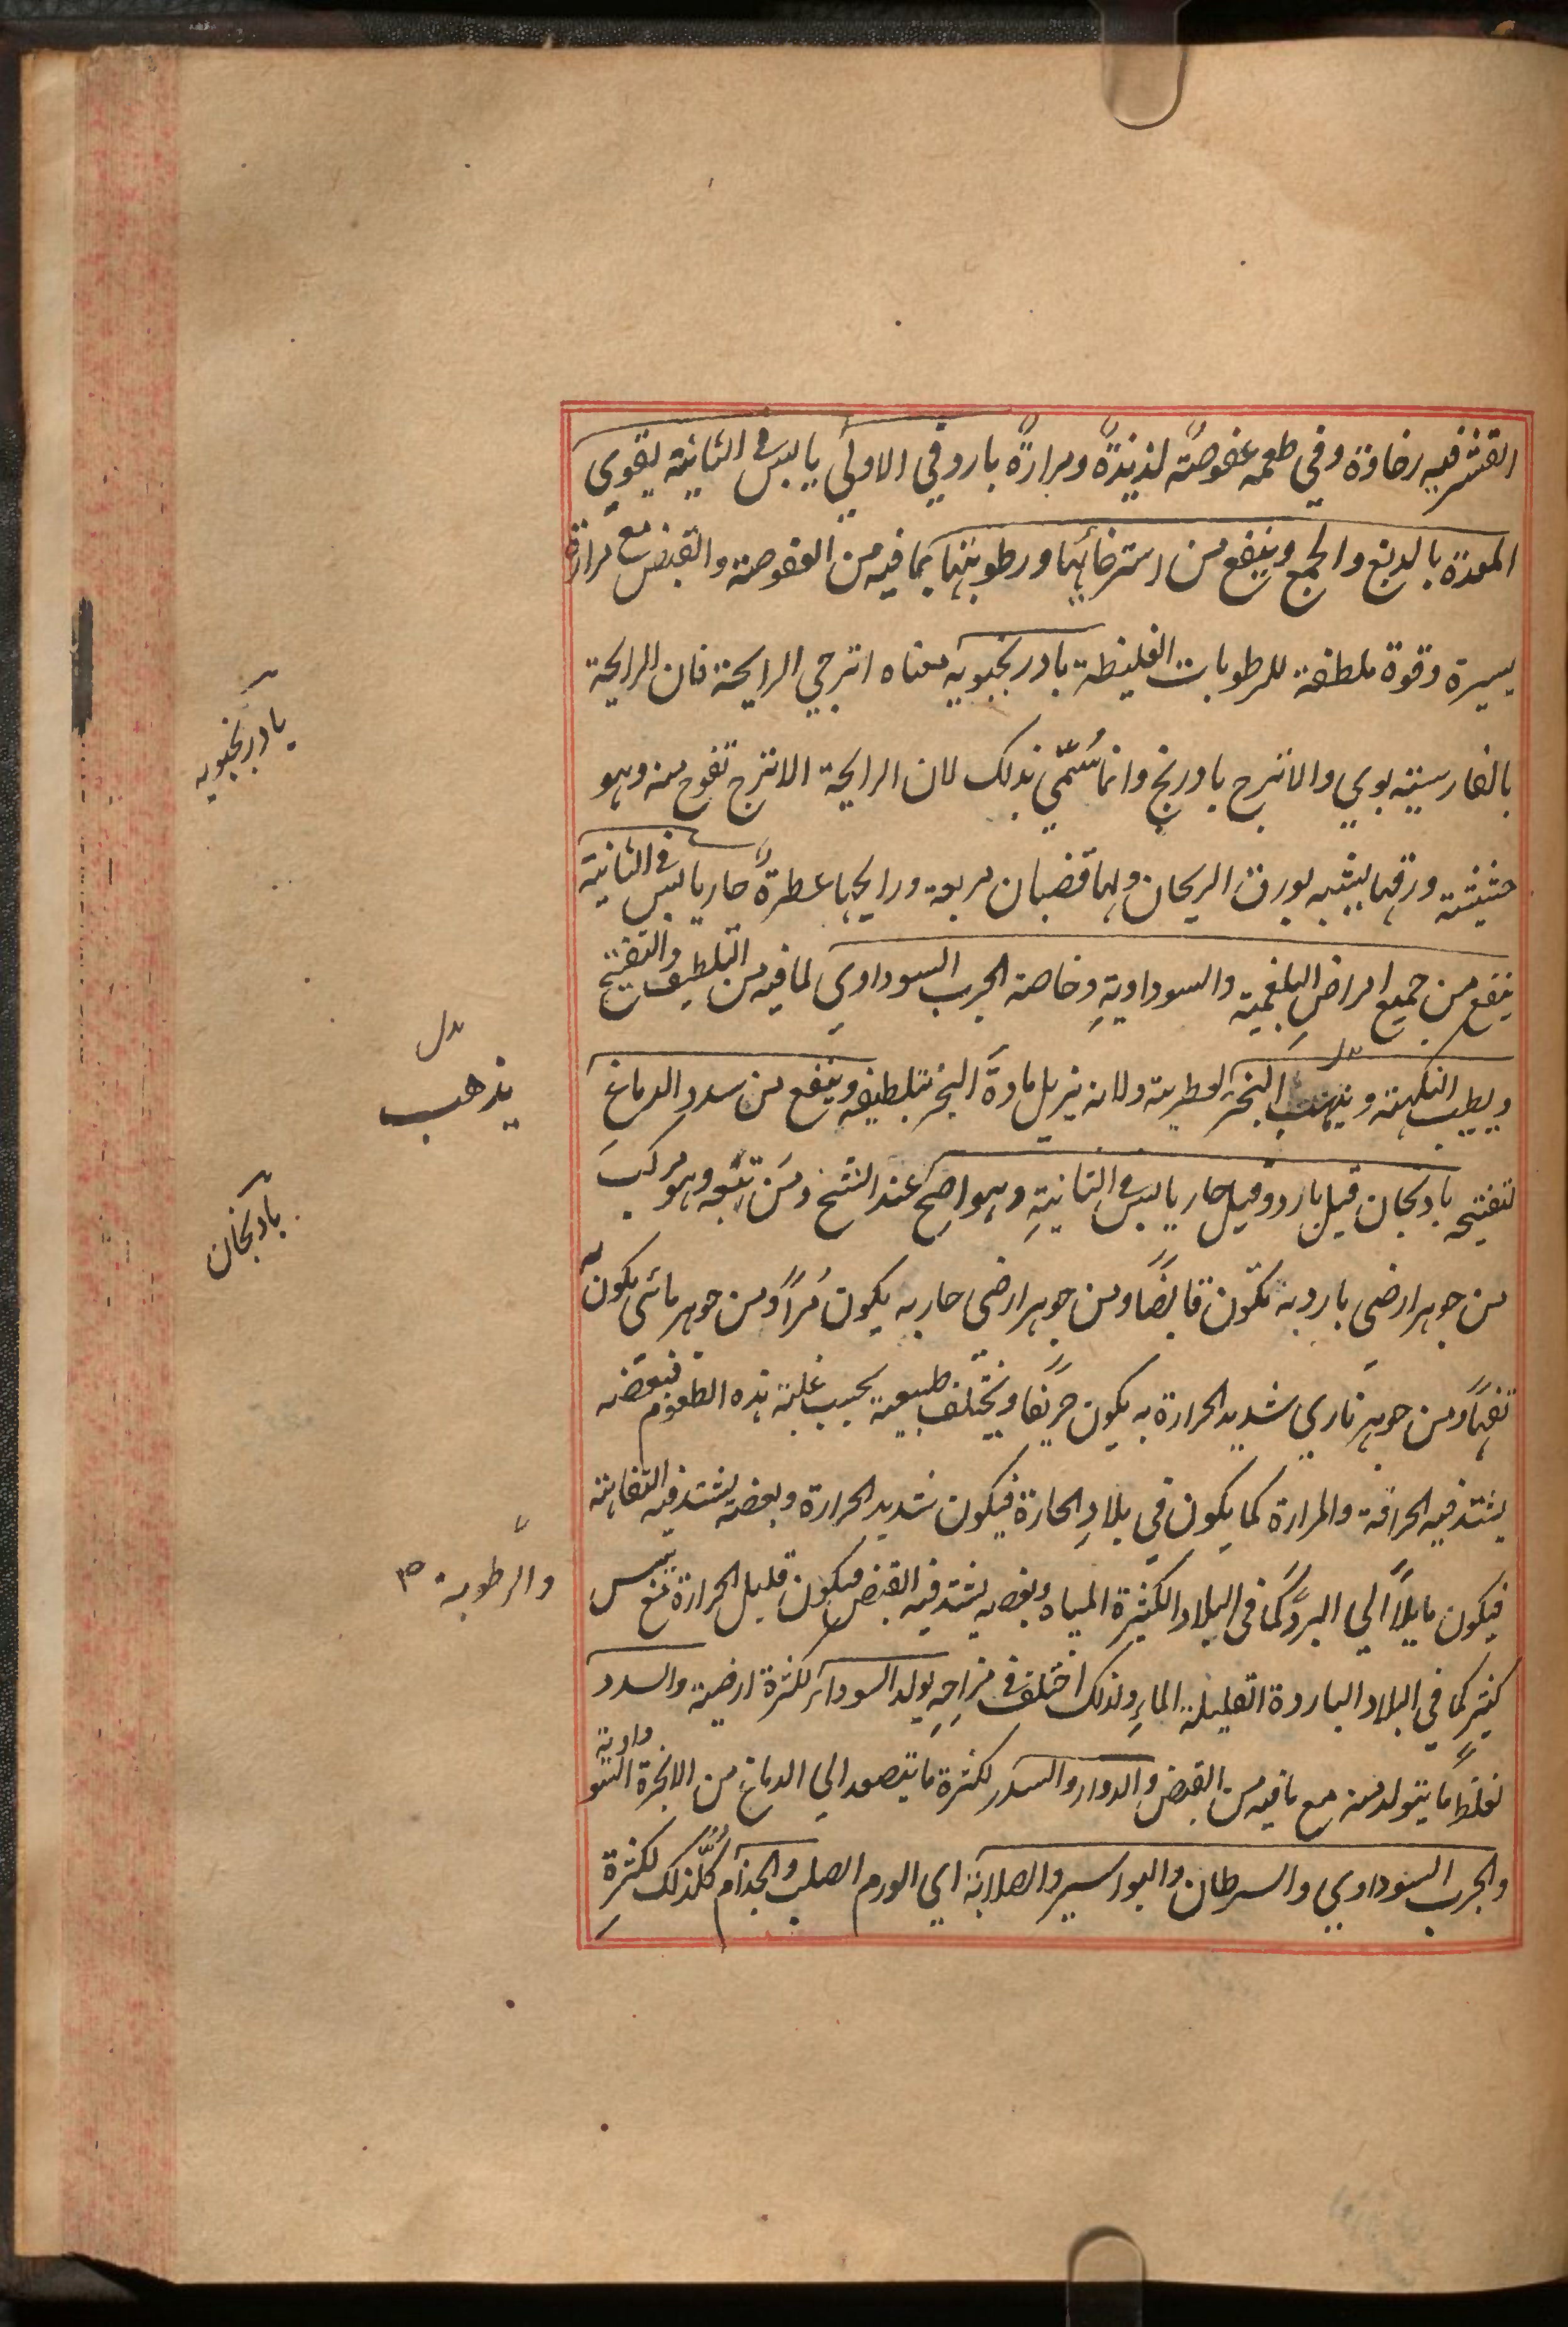 القشر فيه رخاوة وفي طعمه عفوصةً لذيذةً ومرارةً بارد في الاولي يابس في الثانية يقوي
المعدة بالدبغ والجمع وينفع من استرخائها ورطوبتها بما فيه من العفوصة والقبض مع مرارة
يسيرة وقوة ملطفة للرطوبات الغليظة بادرنجبويه معناه اترجي الرايحة فان الرايحة
بالفارسية بوي والاترج بادرنج وانما سُمّي بذلك لان الرايحة الاترج تفوح منه وهو
حشيشة ورقها يشبه بورق الريحان ولها قضبان مربعة ورايحها عطرةً حار يابس في الثانية
ينفع من جميع امراض البلغمية والسوداوية وخاصة الجرب السوداوي لما فيه من التلطيف والتفتيح
ويطيب النكهة ويذهب البخر لعطريته ولانه يزيل مادة البخر بتلطيفه وينفع من سدد الدماغ
لتفتيحه بادنجان قيل بارد وقيل حار يابس في الثانية وهو اصح عند الشخ ومَن تبعه وهو مركب
من جوهر ارضي بارد به تكون قابضًا ومن جوهر ارضي حار به يكون مُرًا ومن جوهر مائي يكون به
تفهًا ومن جوهر ناري شديد الحرارة به يكون حرّيفًا ويختلف طبيعية بحسب غلبة هذه الطعوم فبعضه
يشتد فيه الحرافة والمرارة كما يكون في بلاد الحارة فيكون شديد الحرارة وبعضه يشتد فيه التفاهة
فيكون مايلًا الي البرد كما في البلاد الكثيرة المياه وبعضه يشتد فيه القبض فيكون قليل الحرارة مع يبس
كثير كما في البلاد الباردة القليلة الماء ولذلك اختلف في مزاجه يولد السوداء لكثرة ارضية والسدد
لغلظ ما يتولد منه مع ما فيه من القبض والدوار والسدر لكثرة ما يتصعد الي الدماغ من الابخرة السوداوية
والجرب السوداوي والسرطان والبواسير والصلابة اي الورم الصلب والجذام كُلُّ ذلك لكثرة
بادرنجبويه
بدل
يذهب
بادنجان
والرطوبة